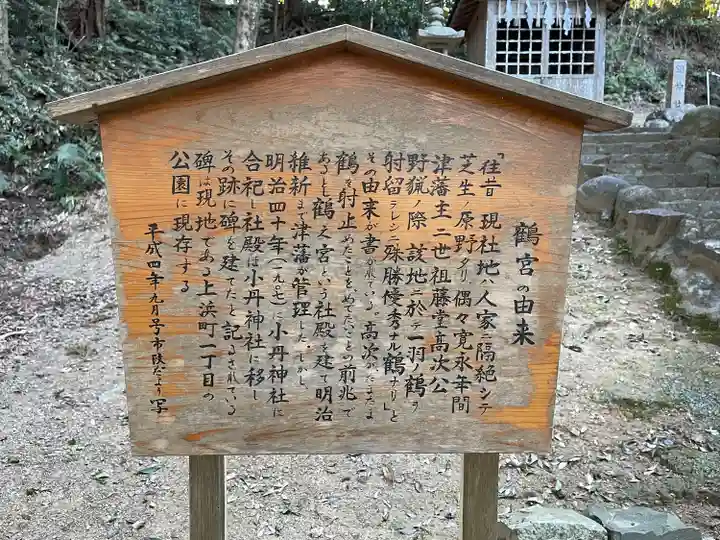 鶴宮の由来
「往昔 現社地ハ人家ニ隔絶シテ
芝生ノ原野タリ 偶々寛永年間
津藩主二世祖藤堂高次公
野猟ノ際 設地ニ於テ一羽ノ鶴ヲ
射留ラレシニ殊勝優秀ナル鶴ナリ」と
その由来が書かれている。高次がたまたま
鶴を射止めたことをめでたいことの前兆で
あると鶴之宮という社殿を建て明治
維新まで津藩が管理した。しかし、
明治四十年(一九〇七)に小丹神社に
合祀し社殿は小丹神社に移し
その跡に碑を建てたと記るされている
碑は現地である上浜町一丁目の
公園に現存する
平成四年九月号市政だより写